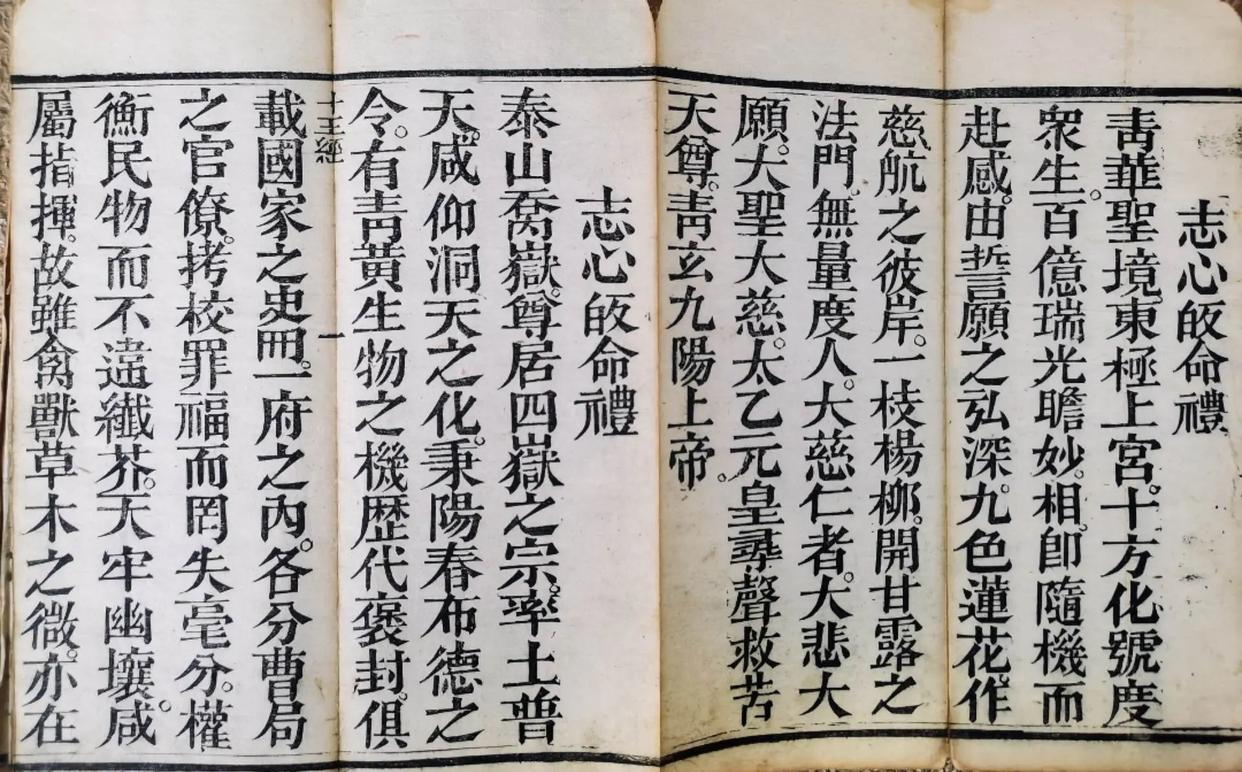 志心皈命禮
靑華聖境。東極上宮。十方化號度
衆生。百億瑞光瞻妙。相。卽隨機而
赴感。由誓願之弘深。九色蓮花。作
慈航之彼岸。一枝楊柳。開甘露之
法門。無量度人。大慈仁者。大悲大
願。大聖大慈。太乙元皇尋聲救苦
天尊。靑玄九陽上帝。
志心皈命禮
泰山喬嶽。尊居四嶽之宗。率土普
天。咸仰洞天之化。秉陽春布德之
令。有靑黃生物之機歴代褒封。俱
十王經
一
載國家之史冊。一府之內。各分曹局
之官僚。拷校罪福而罔失毫分。權
衡民物而不違纖芥。天牢幽壤。咸
屬指揮。故雖禽獸草木之微。亦在